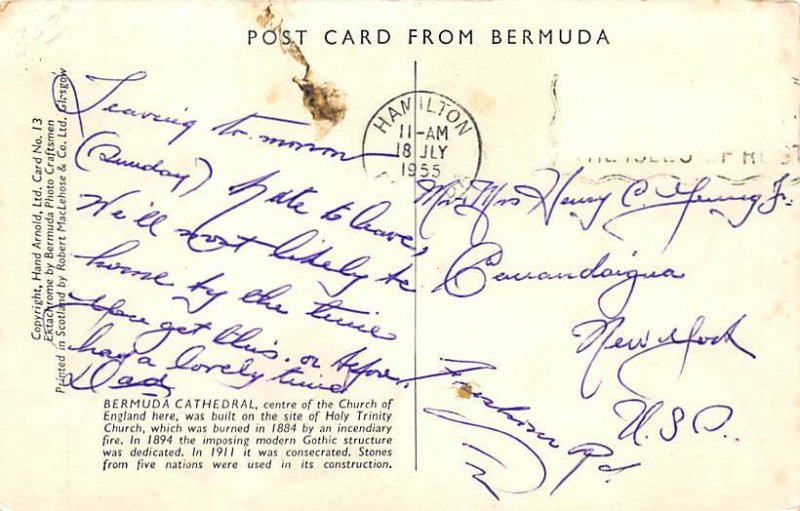 POST CARD FROM BERMUDA
Copyright, Hand Arnold, Ltd. Card No. 13
Ektachrome by Bermuda Photo Craftsmen
Printed in Scotland by Robert MacLehose & Co. Ltd. Glasgow
Leaving to-morrow
(Sunday) Hate to leave,
We'll most likely be
home by the time
you get this. or before.
had a lovely time
Dad
BERMUDA CATHEDRAL, centre of the Church of
England here, was built on the site of Holy Trinity
Church, which was burned in 1884 by an incendiary
fire. In 1894 the imposing modern Gothic structure
was dedicated. In 1911 it was consecrated. Stones
from five nations were used in its construction.
HAMILTON
11-AM
18 JLY
1955
THE ISLES OF REST
Mr. & Mrs Henry C. Jr.
Canandaigua
New York
U.S.A.
Rd.